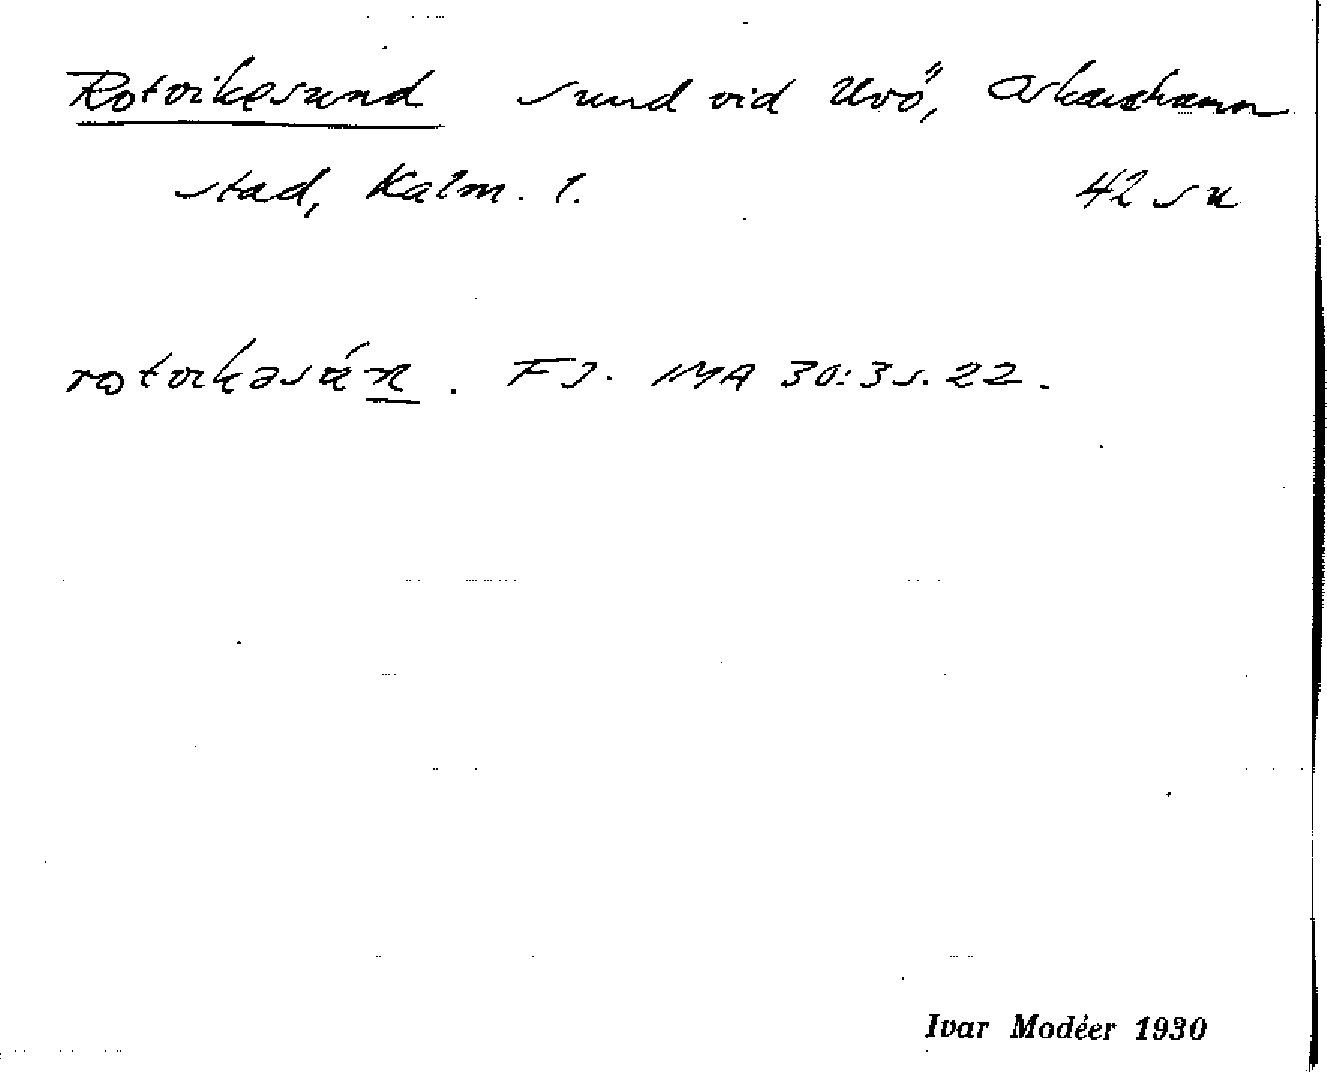 Rotvikesund sund vid Uvö, Oskarshamn
stad, Kalm. l. 42 su
rotvikəsún. FJ. IMA 30:3 s. 22.
Ivar Modéer 1930